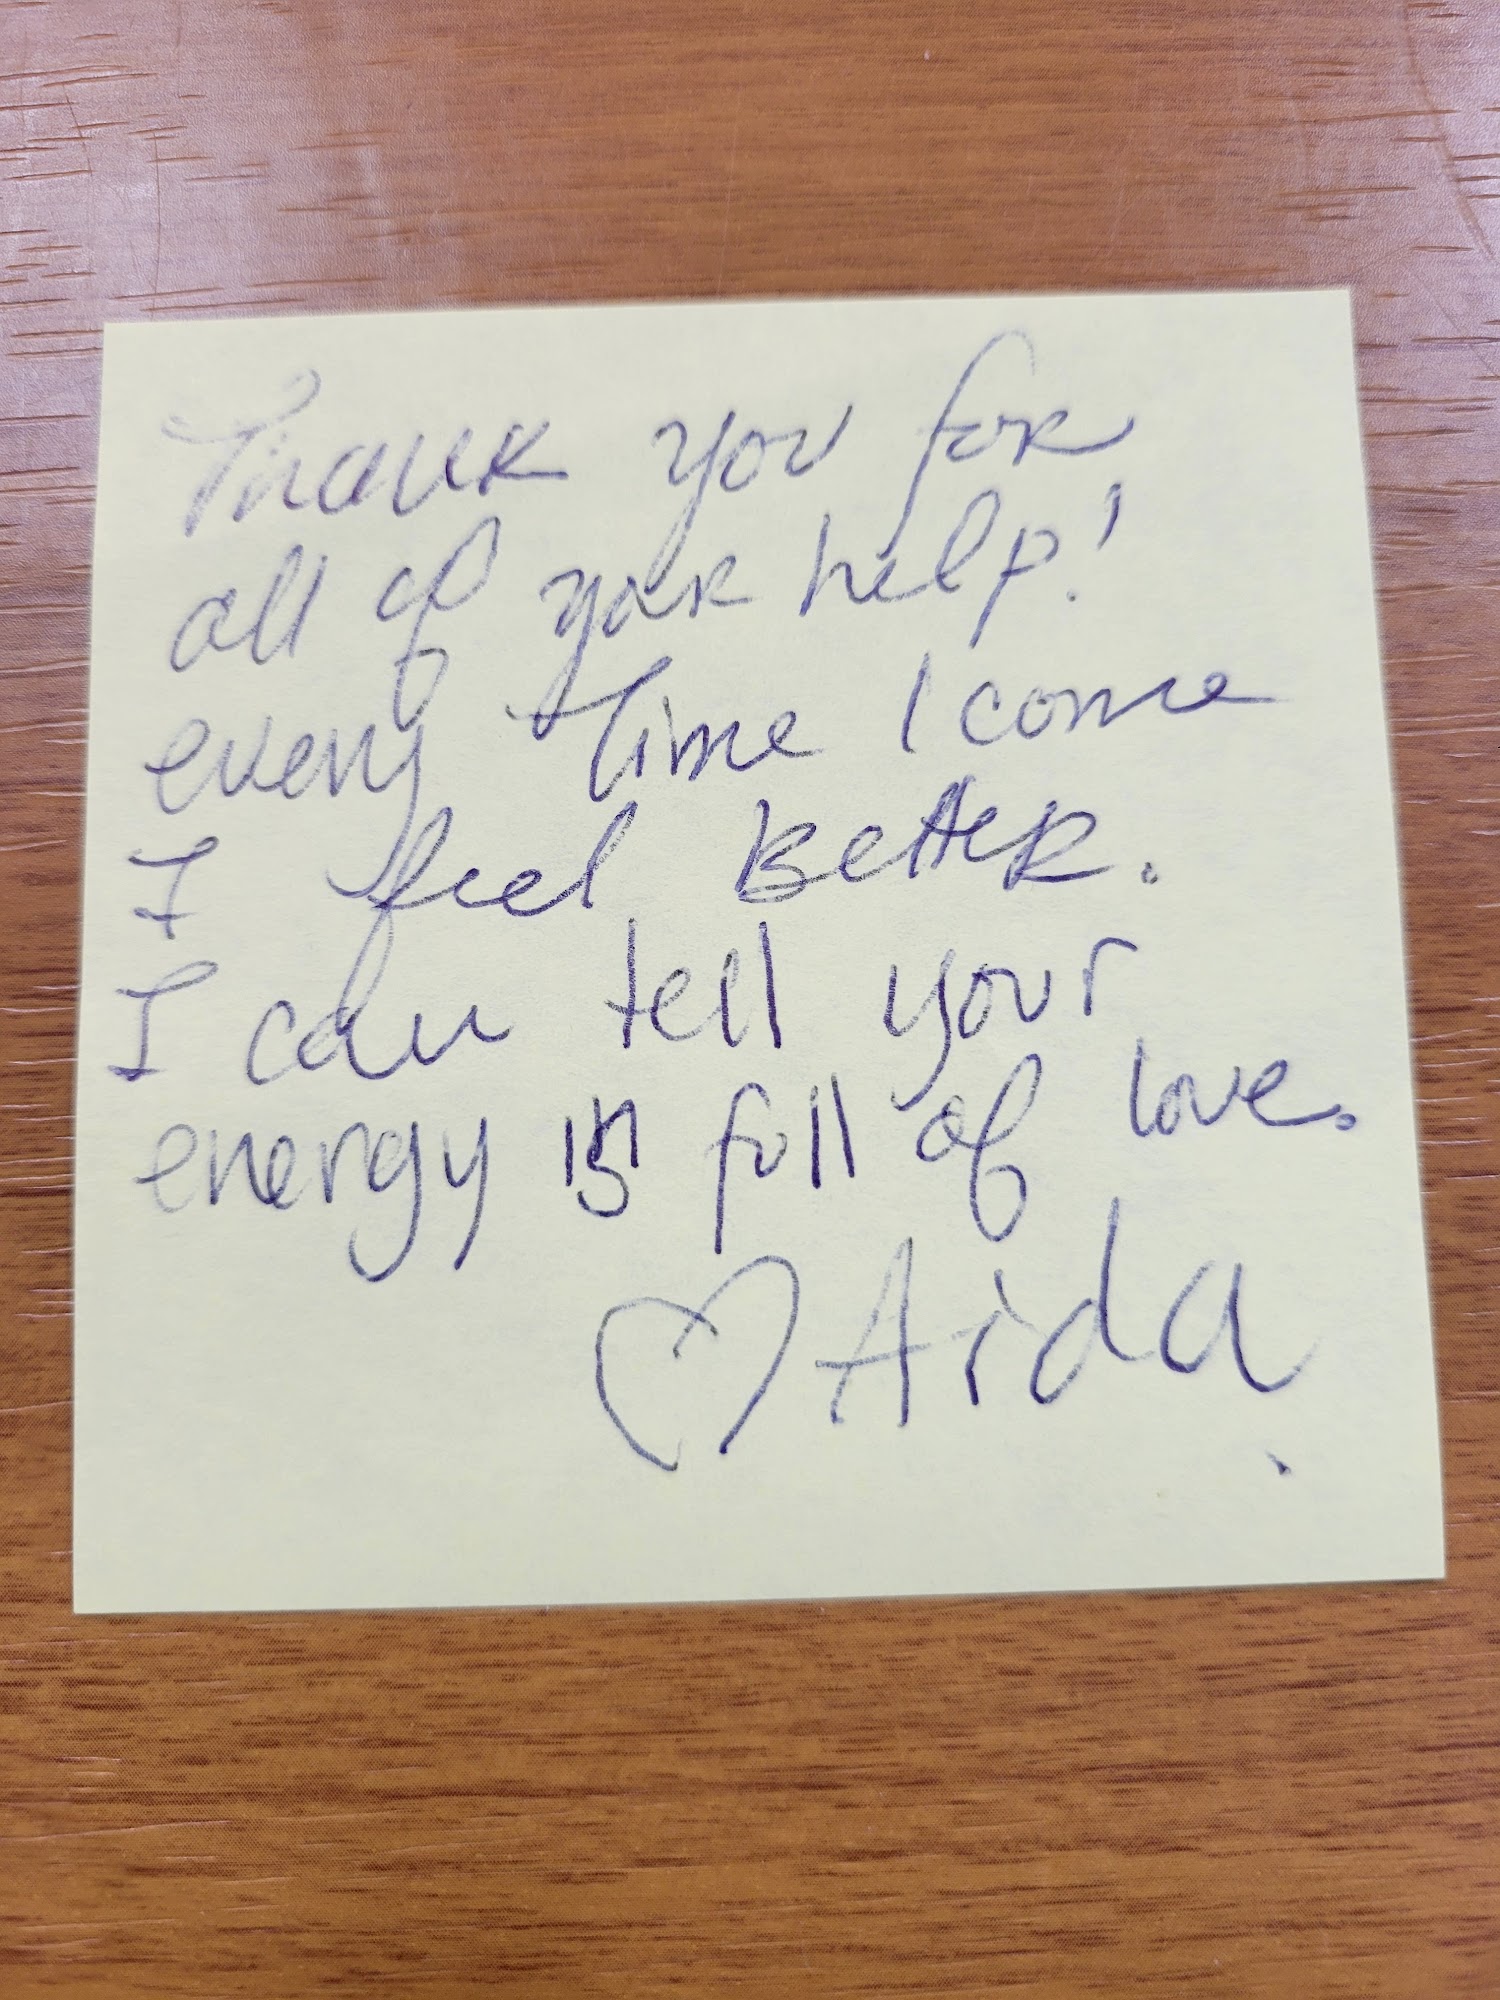 Thank you for
all of your help!
every Time I come
I feel Better.
I can tell your
energy is full of love.
♡ Aida